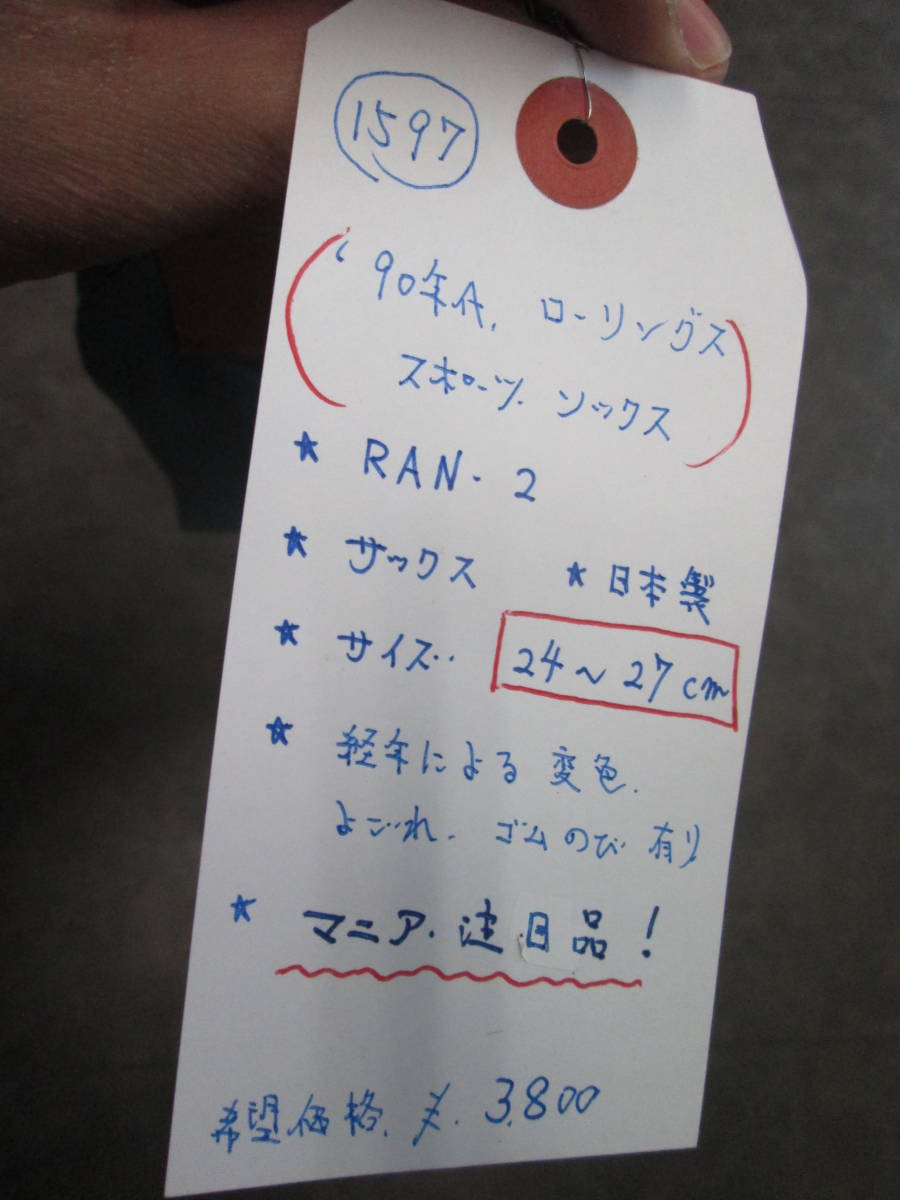 1597
'90年代. ローリングス
スポーツ. ソックス
★ RAN-2
★ サックス ★日本製
★ サイズ‥ 24〜27cm
★ 経年による変色.
よごれ. ゴムのび有り
★ マニア.注目品!
希望価格. ¥. 3,800